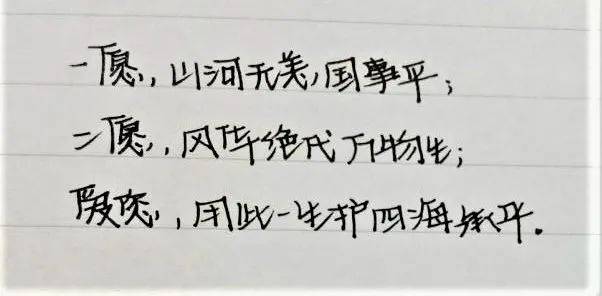 一愿，山河无恙，国事平；
二愿，风华绝代万物生；
愿，用此一生护四海承平。